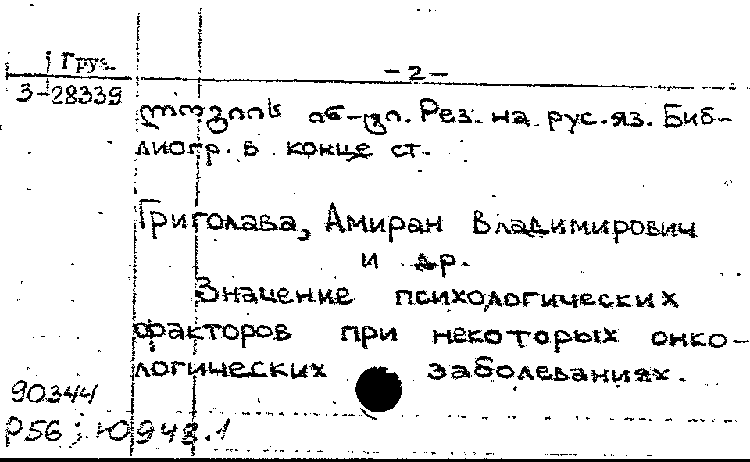 Груз.
-2-
3-28339
ლოგიის ინ-ტი. Рез. на рус. яз. Биб-
лиогр. в конце ст.
Григолава, Амиран Владимирович
и др.
Значение психологических
факторов при некоторых онко-
логических заболеваниях.
90344
P56; Ю948.1